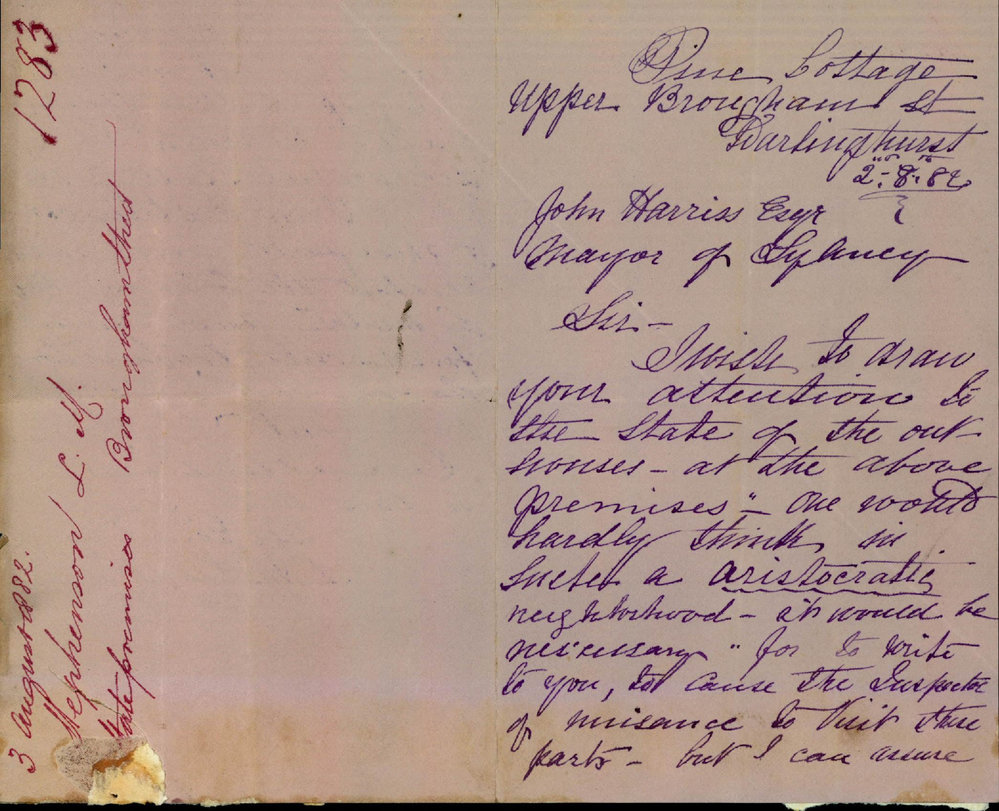 1283
3 August 1882.
Stephenson L. M.
State premises Brougham Street
Pine Cottage
Upper Brougham St
Darlinghurst
2-8-82
John Harriss Esqr
Mayor of Sydney
Sir-
I wish to draw
your attention to
the State of the out
houses - at the above
premises" - One would
hardly think in
such a aristocratic
neighborhood - it would be
necessary " for to write
to you, to cause the Inspector
of nuisance to Visit these
parts - but I can assure